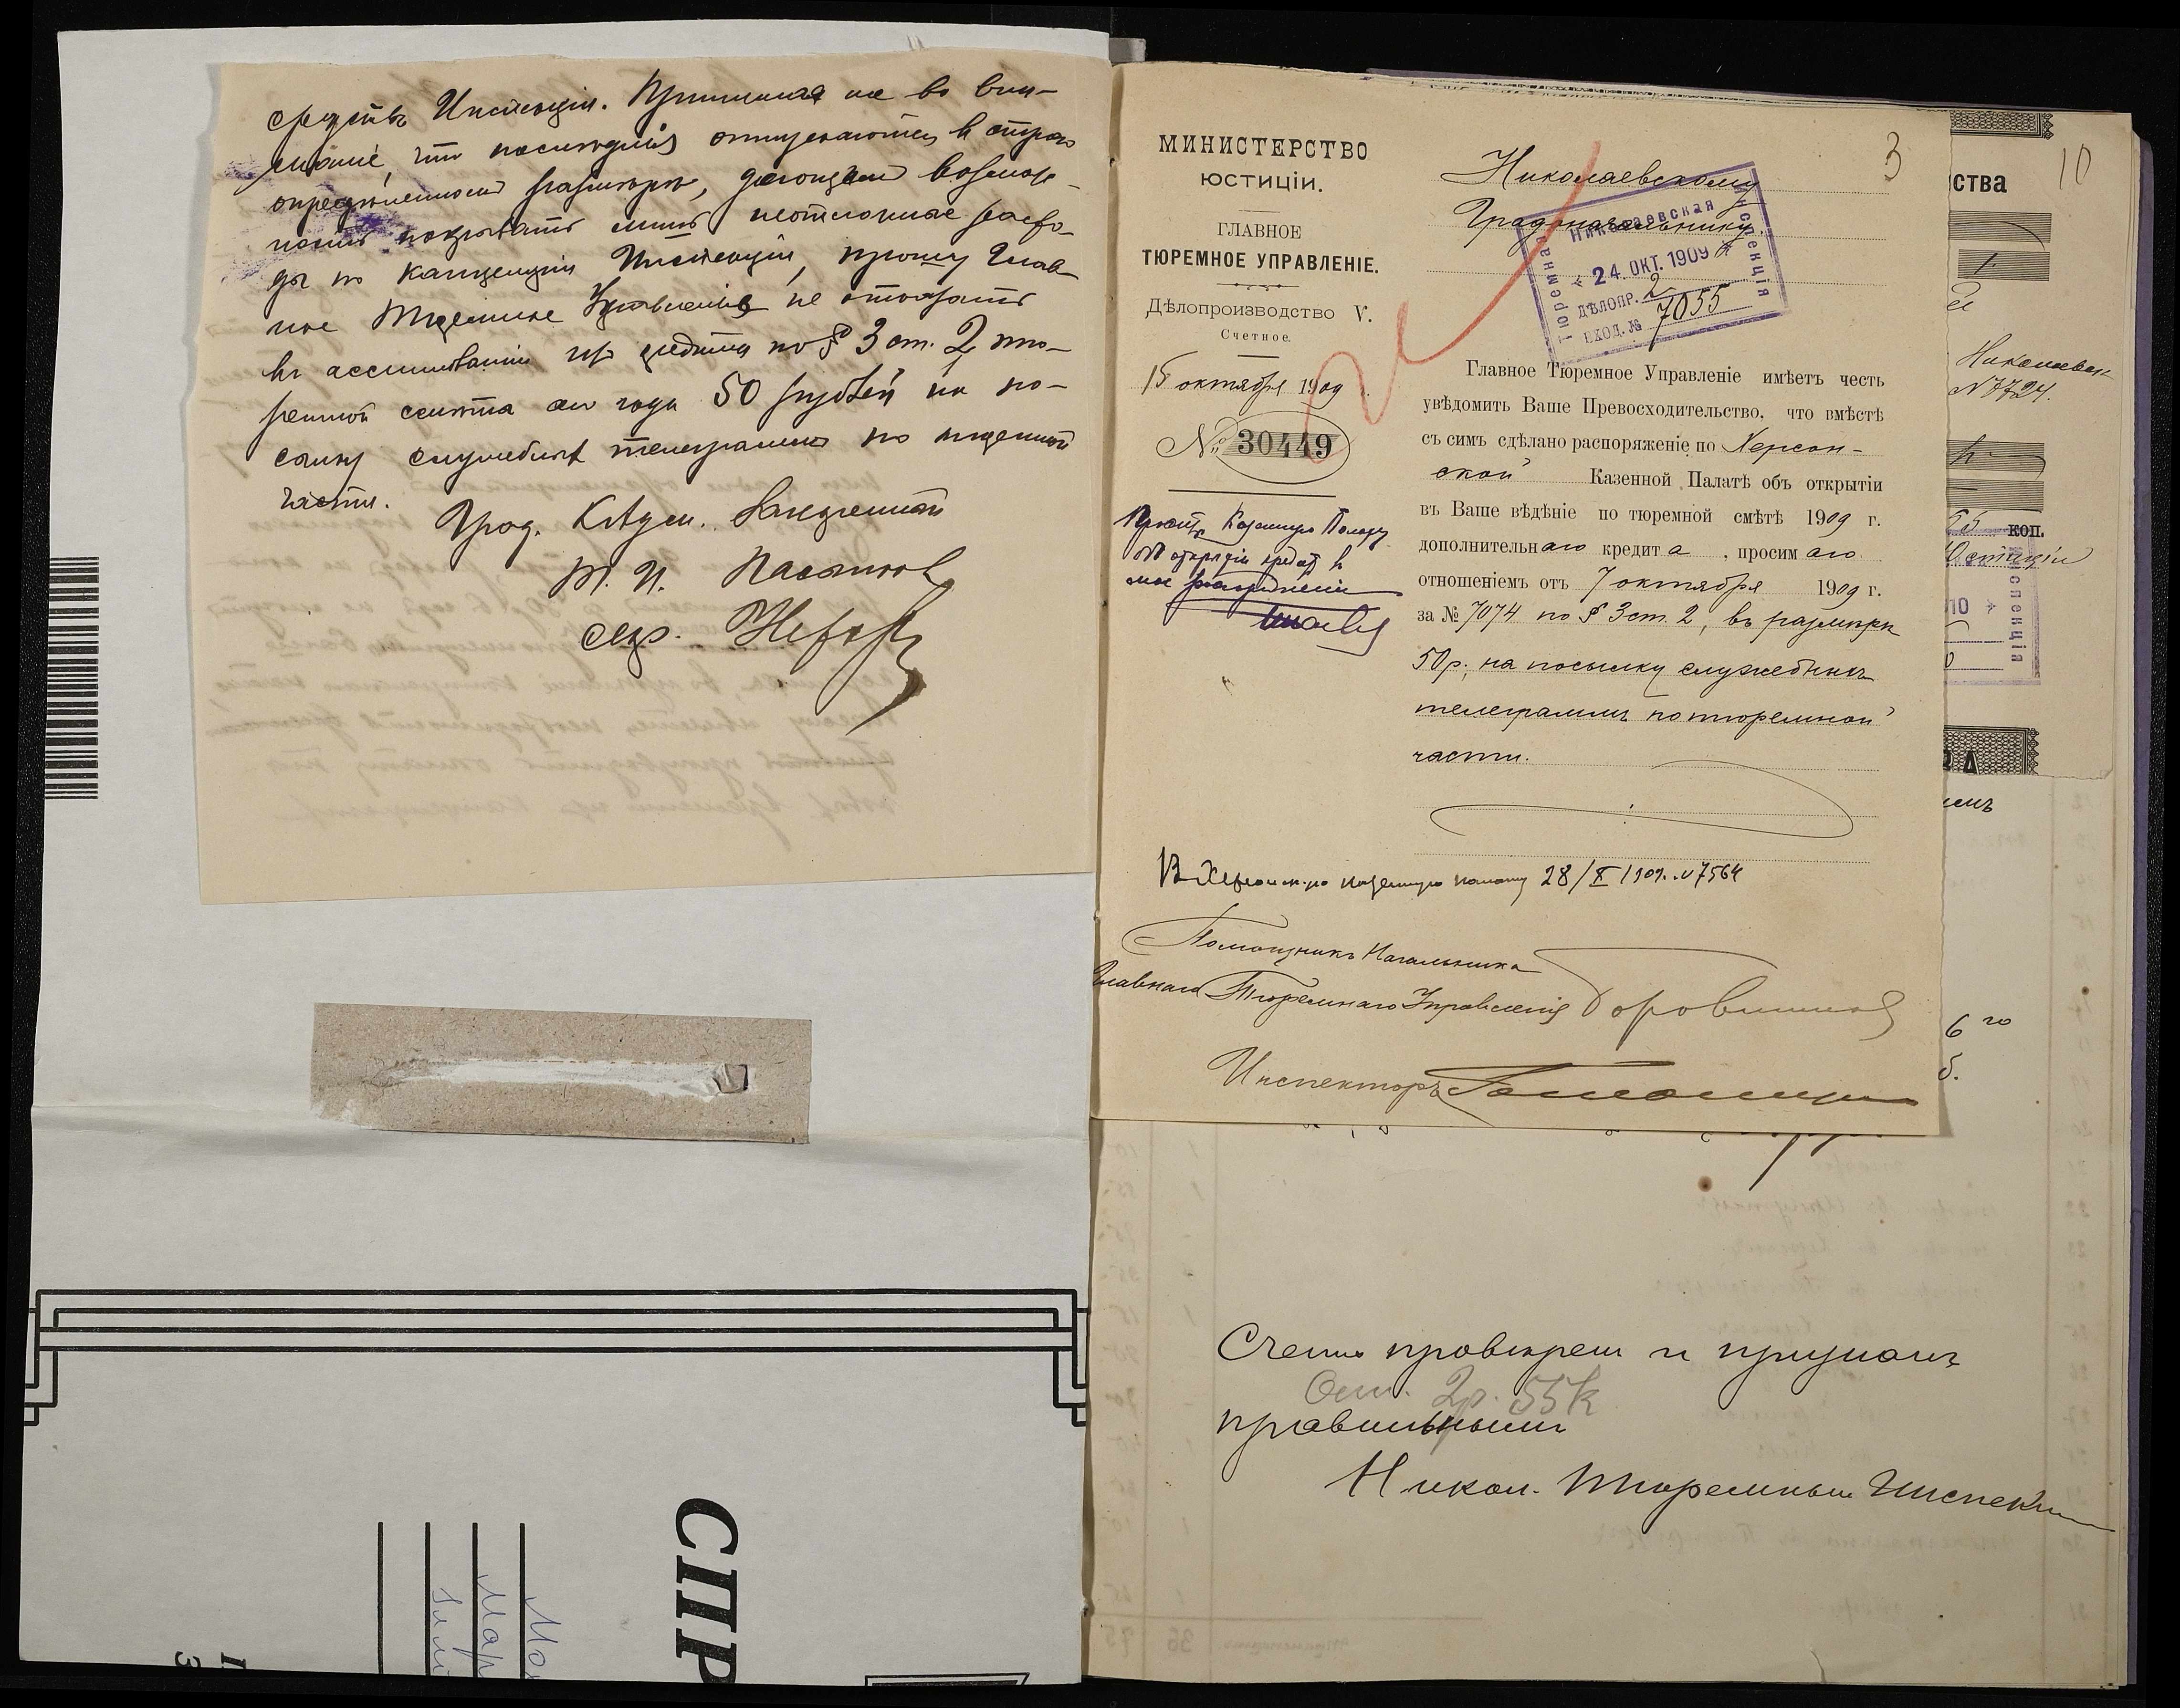 средствъ Инспекціи. Принимая же во вни-
маніе, что послѣднія отпускаются въ строго
опредѣленномъ размѣрѣ, дающемъ возмож-
ность покрывать лишь неотложные расхо-
ды по канцеляріи Инспекціи, прошу Глав-
ное Тюремное Управленіе не отказать
въ ассигнованіи изъ кредита по § 3 ст. 2 тю-
ремной смѣты сего года 50 рублей на по-
сылку служебныхъ телеграммъ по тюремной
части.
Град. К.-Адм.
Т. И.
секр.
СПР
3
МИНИСТЕРСТВО
ЮСТИЦІИ.
ГЛАВНОЕ
ТЮРЕМНОЕ УПРАВЛЕНІЕ.
Дѣлопроизводство V.
Счетное.
15 октября 1909 г.
№ 30449
Просить Казенную Палату
объ открытіи кредита въ
мое распоряженіе
3
Николаевскому
Градоначальнику.
Николаевская
Тюремная Инспекція
24. ОКТ. 1909
ДѢЛОПР. 2
ВХОД. № 7055
Главное Тюремное Управленіе имѣетъ честь
увѣдомить Ваше Превосходительство, что вмѣстѣ
съ симъ сдѣлано распоряженіе по Херсон-
ской Казенной Палатѣ объ открытіи
въ Ваше вѣдѣніе по тюремной смѣтѣ 1909 г.
дополнительнаго кредита, просимаго
отношеніемъ отъ 7 октября 1909 г.
за № 7074 по § 3 ст. 2, въ размѣрѣ
50 р., на посылку служебныхъ
телеграммъ по тюремной
части.
В Херсонск-ую казенную палату 28/X 1909 № 7564
Помощникъ Начальника
Главнаго Тюремнаго Управленія
Инспекторъ
10
ства
1.
Николаевск
№ 8724.
55 коп.
Юстиціи
10
спекція
6 го
Счетъ провѣренъ и признанъ
Ост. 2р. 55к
правильнымъ
Никол. Тюремный Инспек